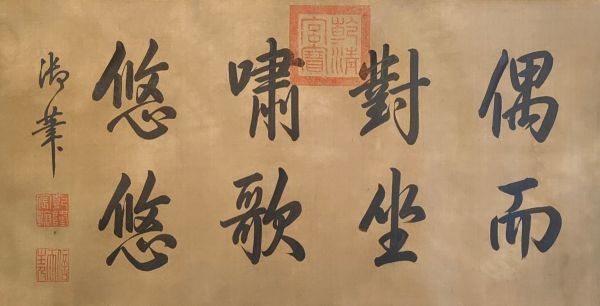 乾清
宮寶
偶而
對坐
嘯歌
悠悠
御筆